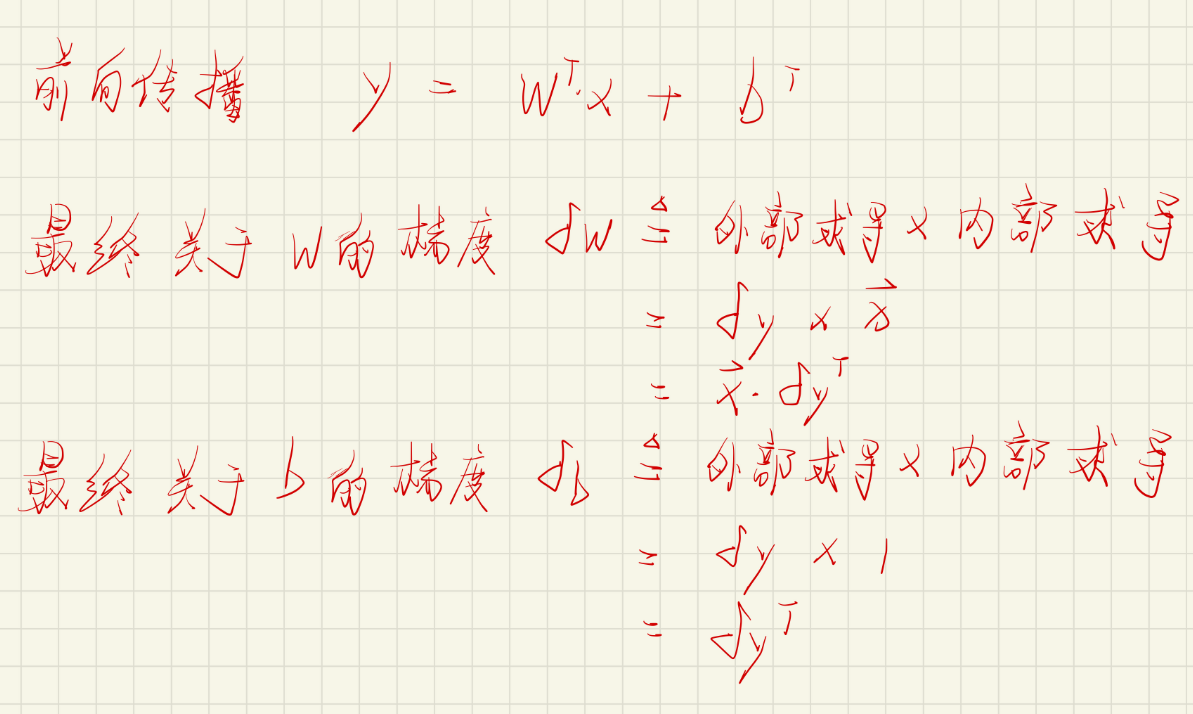 前向传播 y = W^T·x + b^T
最终关于W的梯度 dW ≜ 外部求导 × 内部求导
= dy × x⃗
= x⃗·dy^T
最终关于b的梯度 db ≜ 外部求导 × 内部求导
= dy × 1
= dy^T